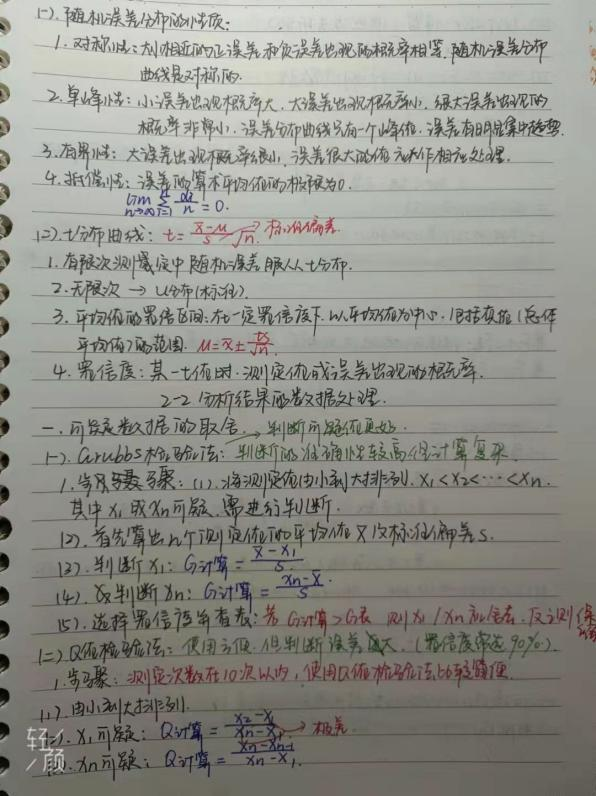 (一).随机误差分布的性质:
1.对称性:大小相近的正误差和负误差出现的概率相等,随机误差分布
曲线是对称的.
2.单峰性:小误差出现概率大,大误差出现概率小,很大误差出现的
概率非常小,误差分布曲线只有一个峰值.误差有明显集中趋势.
3.有界性:大误差出现概率很小,误差很大的值应作相应处理.
4.抵偿性:误差的算术平均值的极限为0.
lim n→∞ Σ i=1 n di/n = 0.
(二).t分布曲线: t= (x̄-μ)/s √n. → 标准偏差
1.有限次测量定中随机误差服从t分布.
2.无限次 → u分布(标准).
3.平均值的置信区间:在一定置信度下,以平均值为中心,包括真值(总体
平均值)的范围. μ=x̄± ts/√n.
4.置信度:某一t值时,测定值或误差出现的概率.
2-2 分析结果的数据处理.
一.可疑数据的取舍. → 判断可疑值更好.
(一).Grubbs检验法: → 判断的准确性较高但计算复杂
1.步骤:(1).将测定值由小到大排列. x₁<x₂<···<xn.
其中x₁或xn可疑,需进行判断.
(2).首先算出n个测定值的平均值x̄及标准偏差s.
(3).判断x₁: G计算= (x̄-x₁)/s.
(4).判断xn: G计算= (xn-x̄)/s.
(5).选择置信度并查表:若G计算>G表 则x₁/xn应舍去,反之则保留
(二)Q值检验法:使用方便,但判断误差大.(置信度常选90%.)
1.步骤:测定次数在10次以内,使用Q值检验法比较简便.
(1).由小到大排列.
(2).x₁可疑: Q计算= (x₂-x₁)/(xn-x₁) → 极差
xn可疑: Q计算= (xn-xn-1)/(xn-x₁).
轻颜